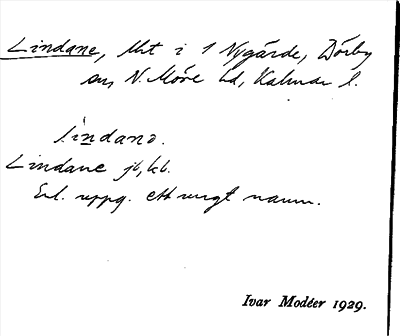 Lindane, lht i 1 Nygärde, Dörby
sn, N. Möre hd, Kalmar l.
lindanə.
Lindane jb, kb.
Enl. uppg. ett ungt namn.
Ivar Modéer 1929.